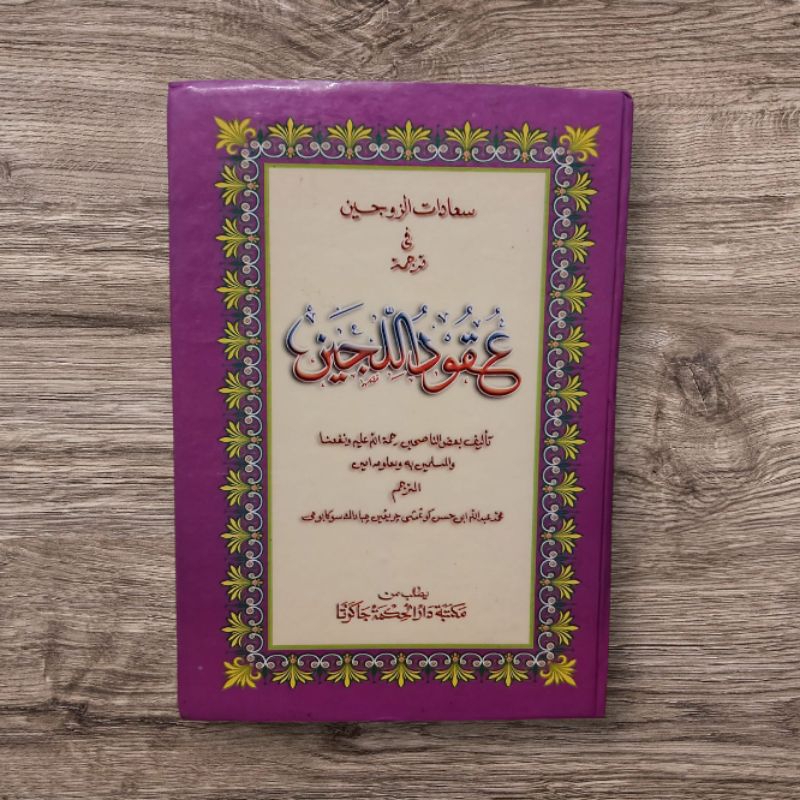 سعادات الزوجين
فى
ترجمة
عُقُودُ اللُّجَيْنِ
تأليف بعض الناصحين رحمة الله عليه ونفعنا
والمسلمين به وبعلومه امين
المترجم
محمد عبدالله ابى حسن
يطلب من
مكتبة دار الحكمة جاكرتا